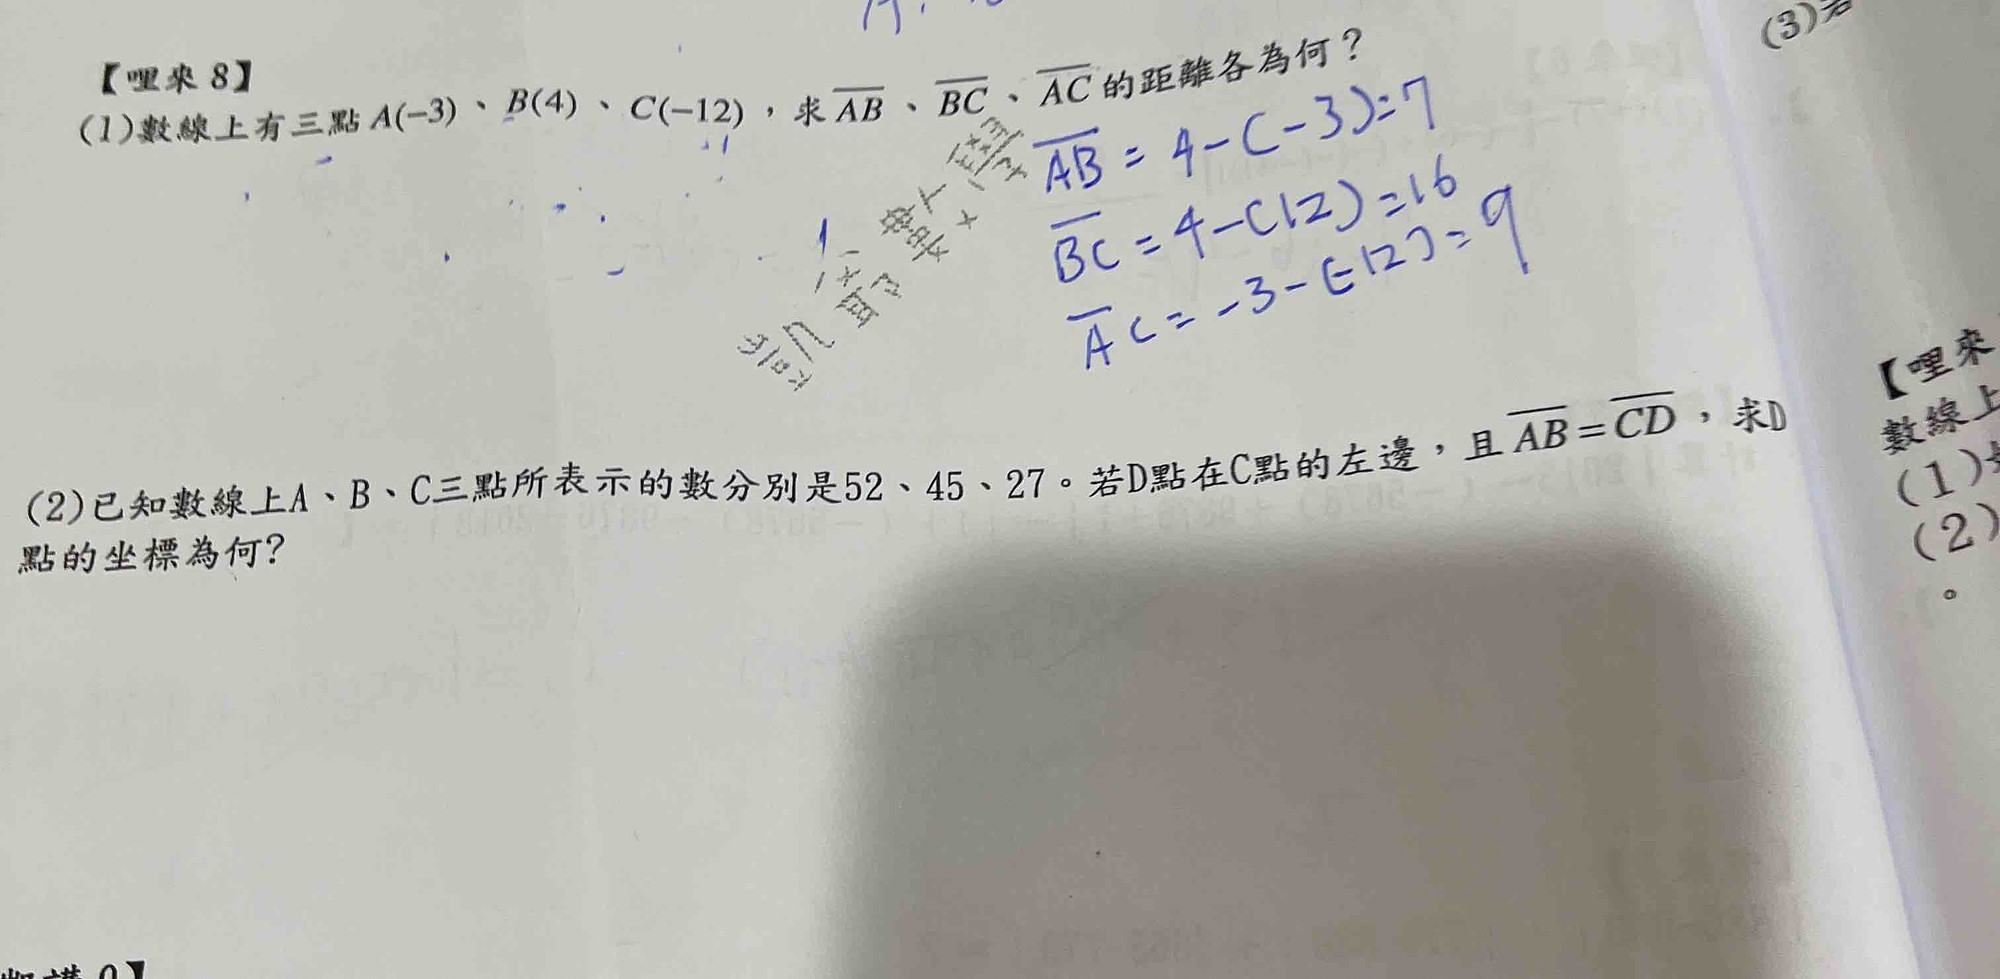 【哩來 8】
(1)數線上有三點 A(−3)、B(4)、C(−12),求 AB、BC、AC 的距離各為何?
AB = 4-(-3)=7
BC = 4-(12)=16
AC = -3-(-12)=9
凱爺數學
(2)已知數線上A、B、C三點所表示的數分別是52、45、27。若D點在C點的左邊,且 AB=CD,求D
點的坐標為何?
(3)若
【哩來
數線上
(1)
(2)
。